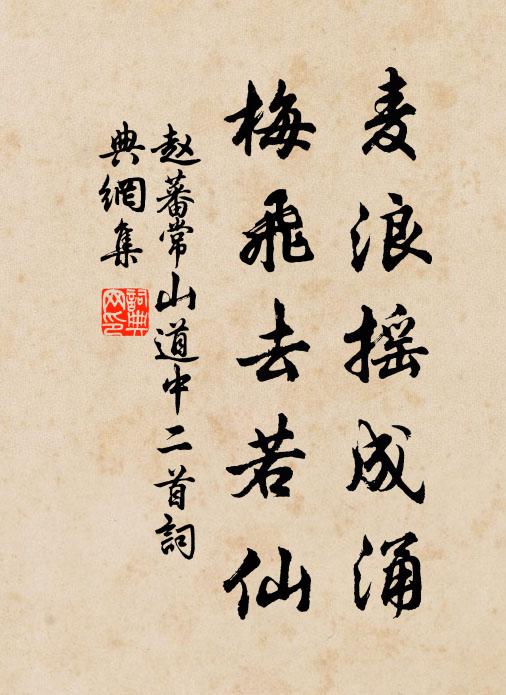 麦浪摇成涌
梅飛去若仙
赵蕃常山道中二首詞
典網集
詞典
网印